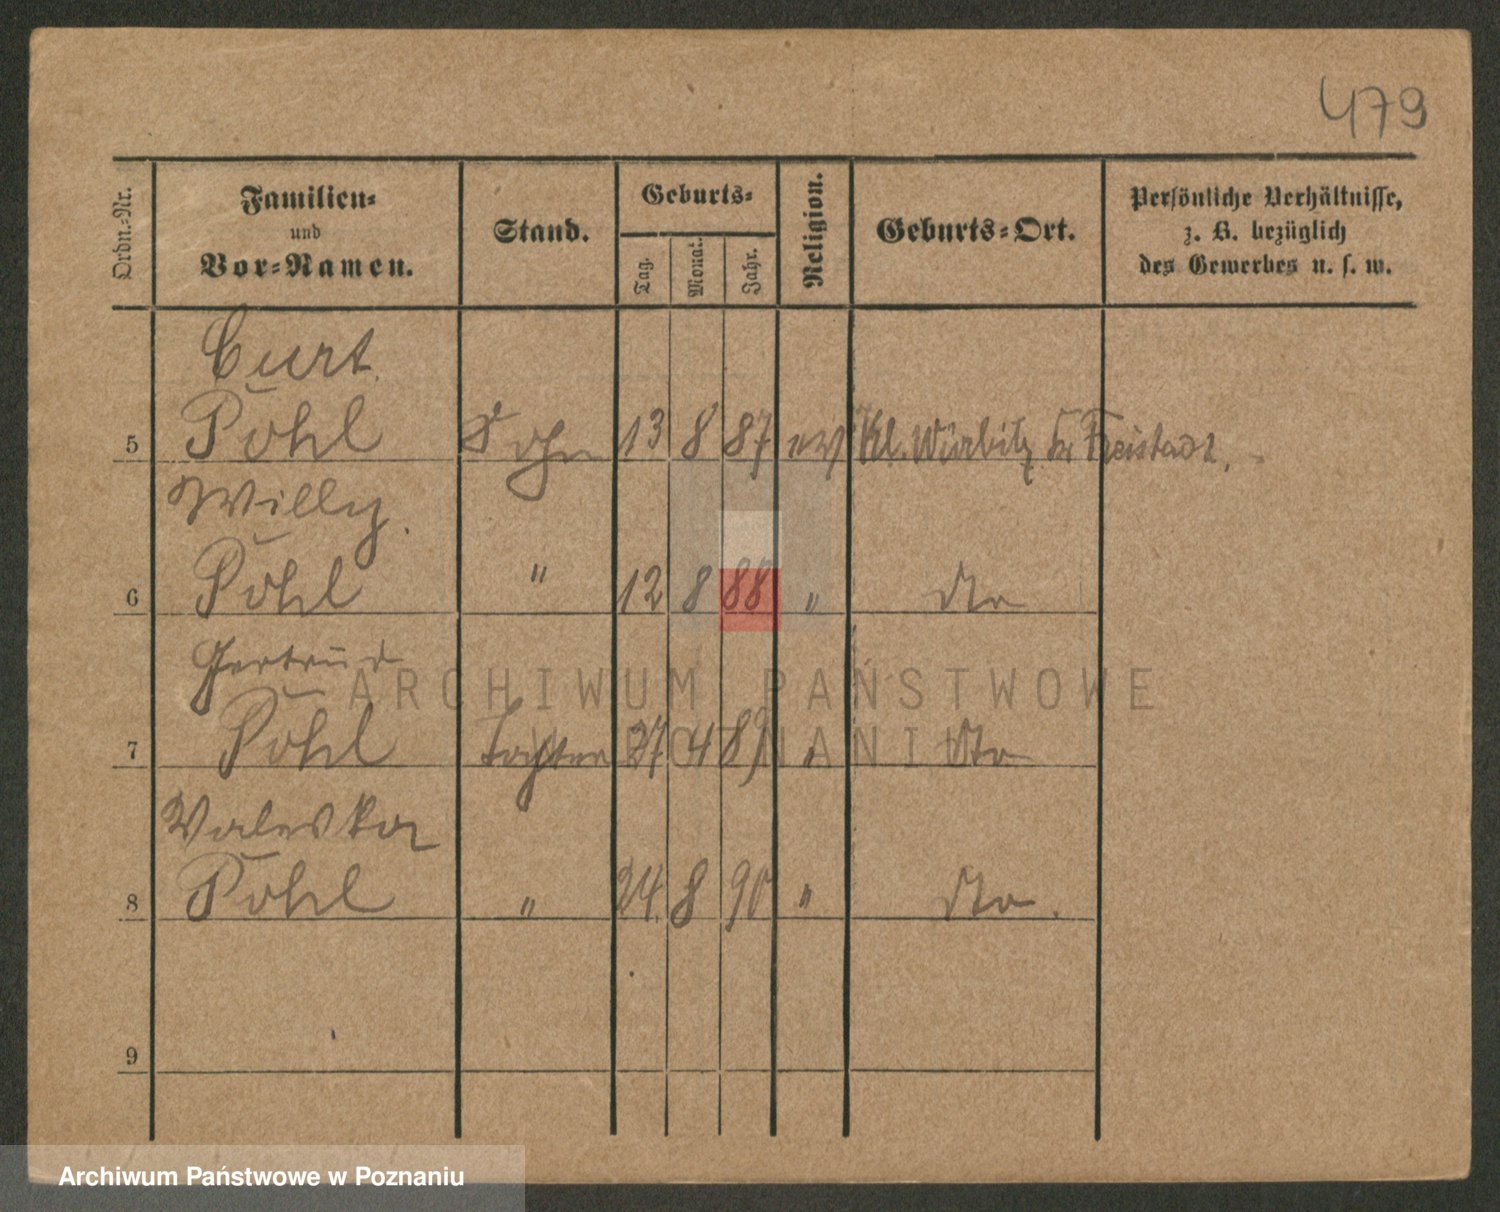 479
Ordn.-Nr.
Familien-
und
Vor-Namen.
Stand.
Geburts-
Tag.
Monat.
Jahr.
Religion.
Geburts-Ort.
Persönliche Verhältnisse,
z. B. bezüglich
des Gewerbes u. s. w.
Curt
5 Pohl Sohn 13 8 87 ev Kl. Würbitz Kr Freistadt.
Willy.
6 Pohl " 12 8 88 " dto
Gertrud
7 Pohl Tochter 27 4 89 " dto
Valeska
8 Pohl " 24. 8 90 " dto.
9
ARCHIWUM PAŃSTWOWE
W POZNANIU
Archiwum Państwowe w Poznaniu